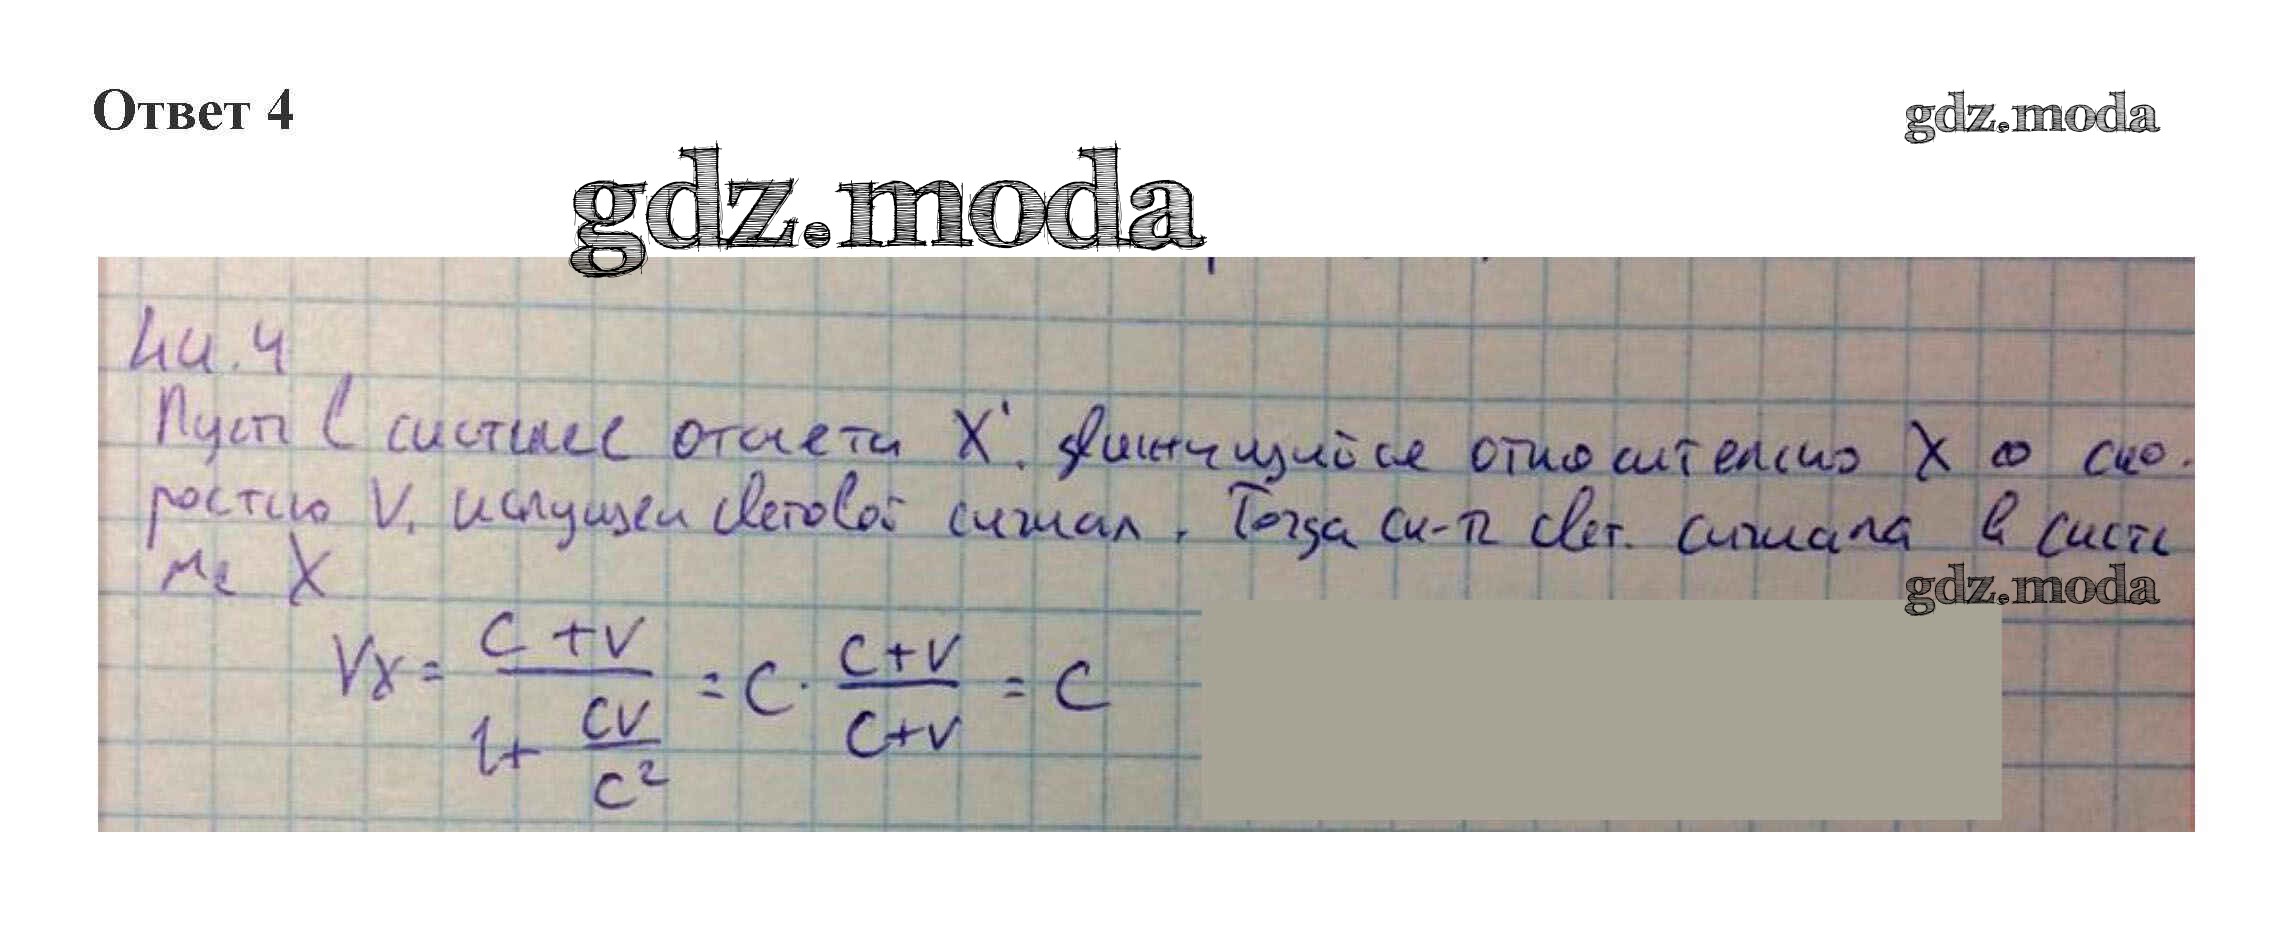 Ответ 4
gdz.moda
gdz.moda
44.4
Пусть в системе отсчета X'. движущийся относительно X со ско-
ростью V, испущен световой сигнал. Тогда ск-ть свет. сигнала в систе
ме X
gdz.moda
Vx = (C + V) / (1 + CV/C²) = C · (C+V)/(C+V) = C